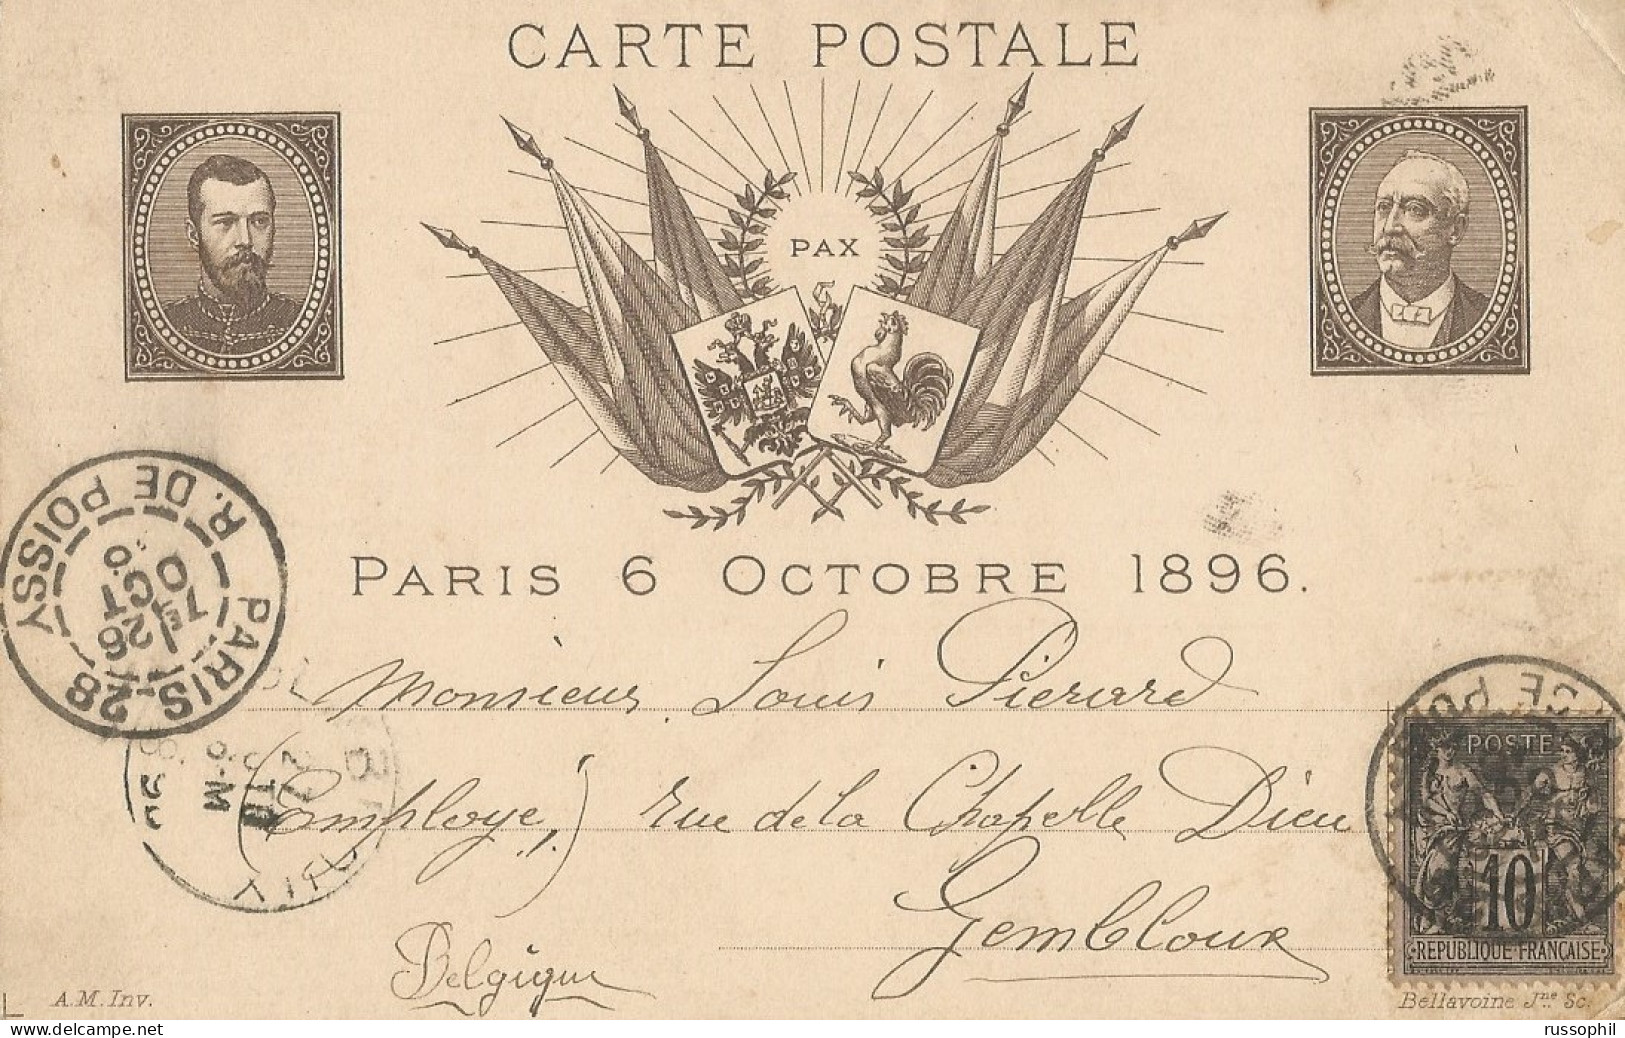 CARTE POSTALE
PAX
PARIS 6 OCTOBRE 1896.
PARIS-28
R. DE POISSY
7E
26
OCT
Monsieur Louis Pierard
(Employé) rue de la Chapelle Dieu
Gembloux
Belgique
POSTE
10
REPUBLIQUE FRANÇAISE
A.M. Inv.
Bellavoine Jne Sc.
russophil
www.delcampe.net